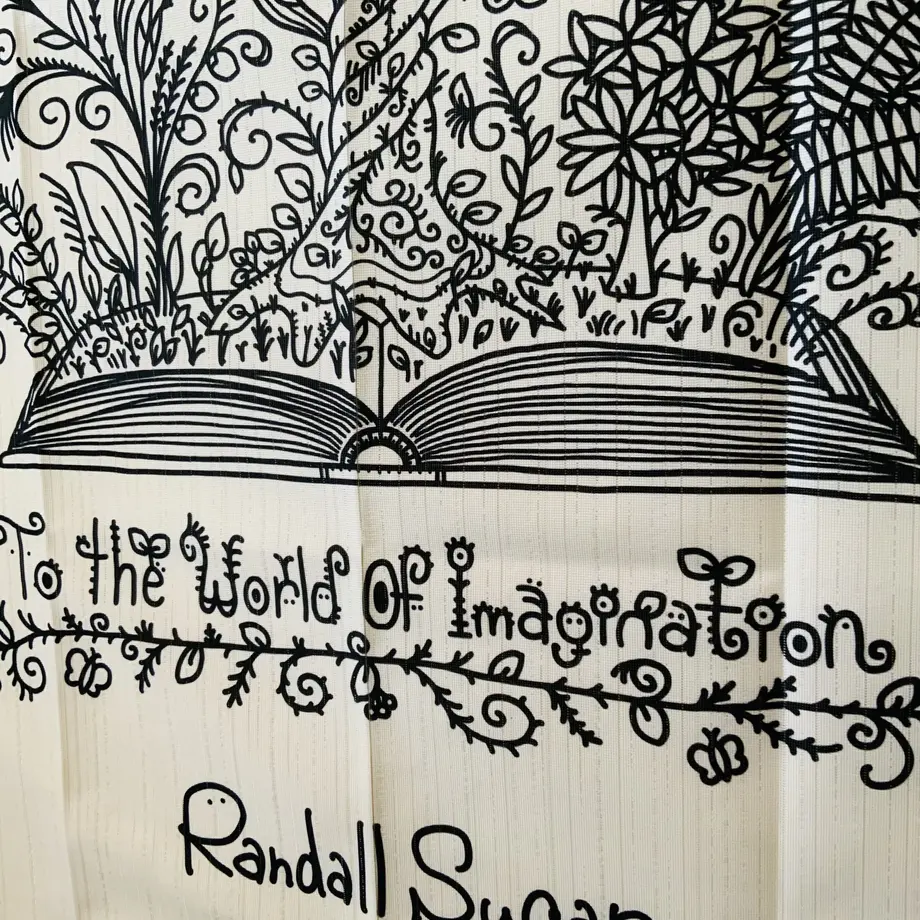 To the World Of Imagination
Randall